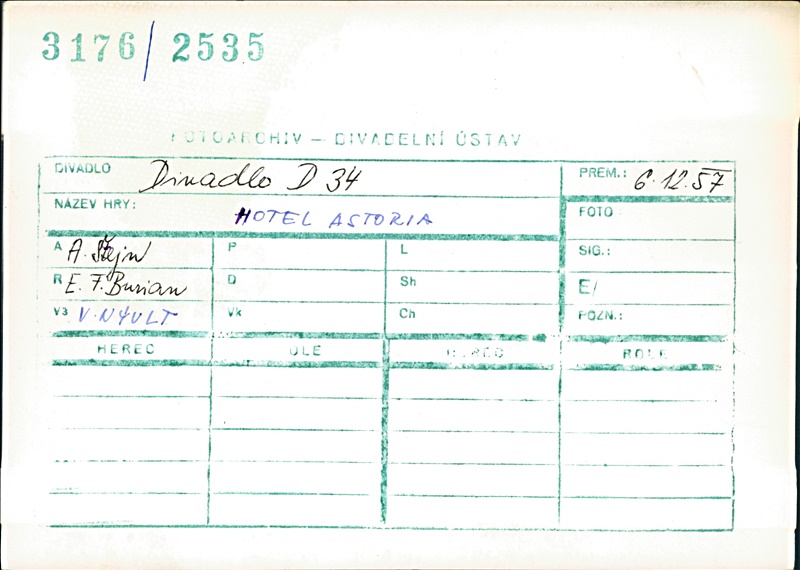 3176/2535
FOTOARCHIV — DIVADELNÍ ÚSTAV
DIVADLO Divadlo D 34 PREM.: 6.12.57
NÁZEV HRY: HOTEL ASTORIA FOTO
A A. Štejn P L SIG.:
R E. F. Burian D Sh E/
V3 V. NÝVLT Vk Ch POZN.:
HEREC ROLE HEREC ROLE